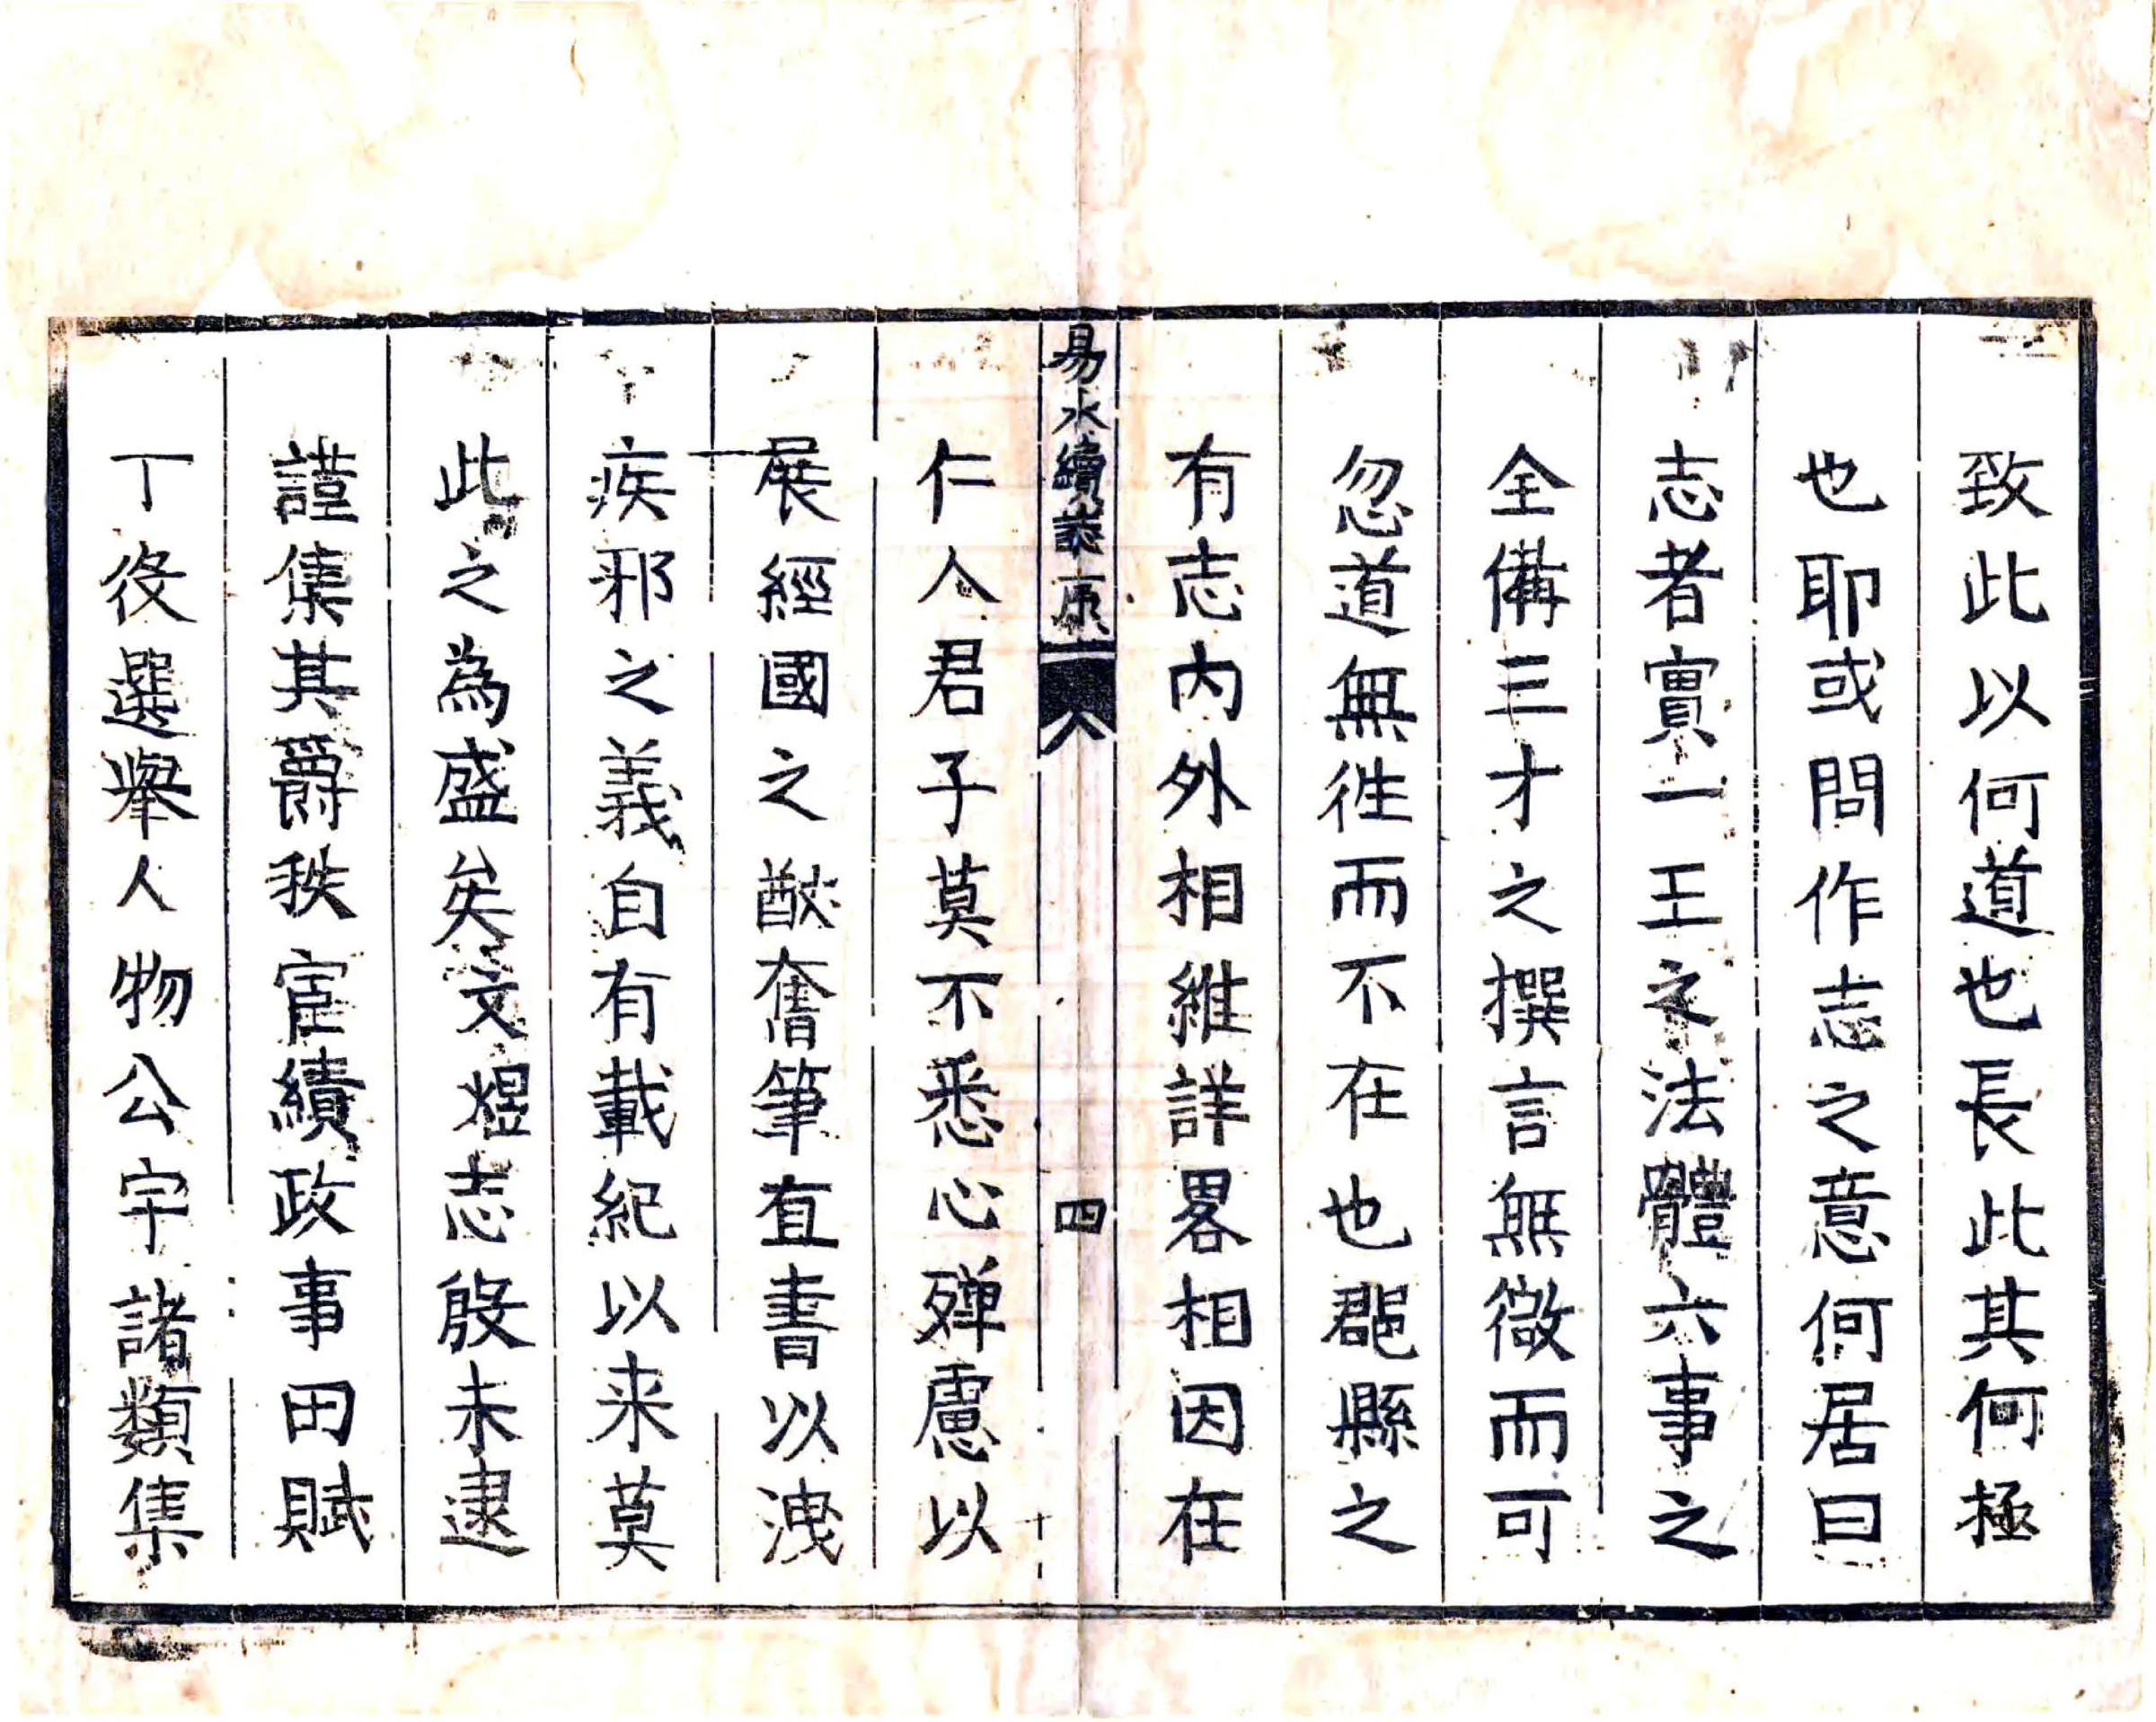 致此以何道也長此其何極
也耶或問作志之意何居曰
志者實一王之法體六事之
全備三才之撰言無徵而可
忽道無徃而不在也郡縣之
有志內外相維詳畧相因在
易水續志原
四
仁人君子莫不悉心殫慮以
展經國之猷奮筆直書以洩
疾邪之義自有載紀以来莫
此之為盛矣文煜志殷未逮
謹集其爵秩宦績政事田賦
丁役選舉人物公宇諸類集